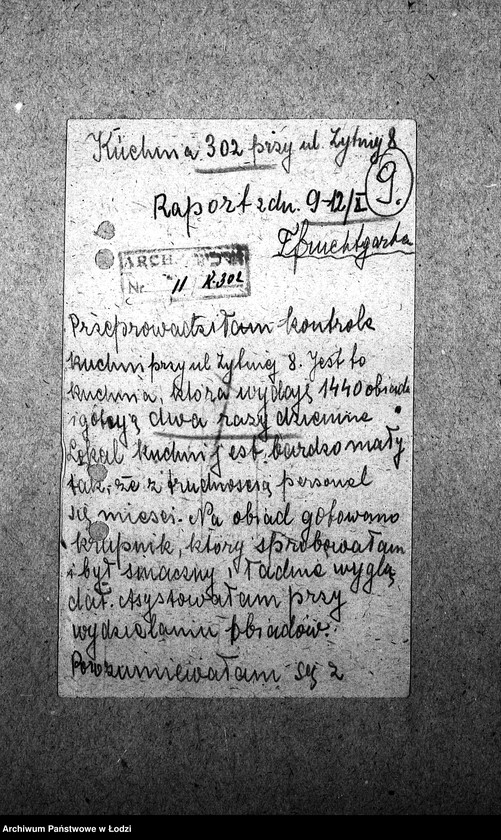 Kuchnia 302 przy ul. Żytniej 8
9.
Raport z dn. 9-12/I
Fruchtgarta
ARCH.
Nr. 11 K.302
Przeprowadziłam kontrolę
kuchni przy ul Żytniej 8. Jest to
kuchnia, która wydaję 1440 obiadó
i gotują dwa razy dziennie
Lokal kuchni jest bardzo mały
tak, że z trudnością personel
się mieści. Na obiad gotowano
krupnik, który spróbowałam
i był smaczny i ładnie wyglą
dał. Asystowałam przy
wydzielaniu obiadów.
Porozumiewałam się z
Archiwum Państwowe w Łodzi